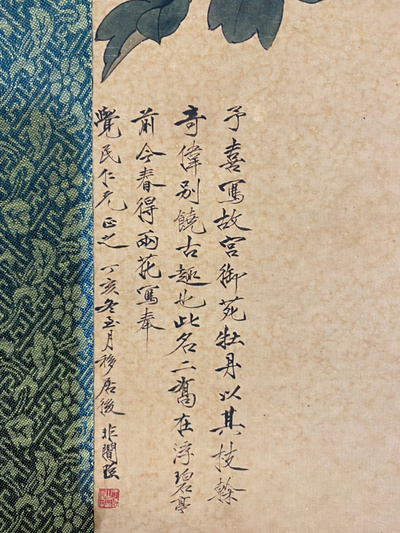 予喜寫故宮御苑牡丹以其枝榦
奇偉別饒古趣也此名二喬在浮碧亭
前今春得兩花寫奉
覺民仁兄正之 丁亥冬至月移居後 非闇